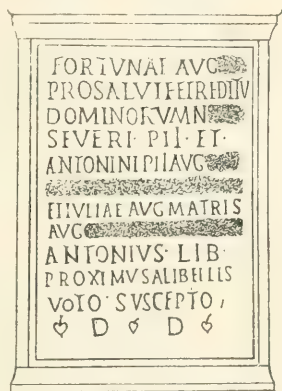 FORTVNAE AVG
PRO SALVTE ET REDITV
DOMINORVM N
SEVERI · PII · ET ·
ANTONINI PII AVG
ET IVLIAE AVG MATRIS
AVG
ANTONIVS · LIB ·
PROXIMVS A LIBELLIS
VOTO · SVSCEPTO ,
D D